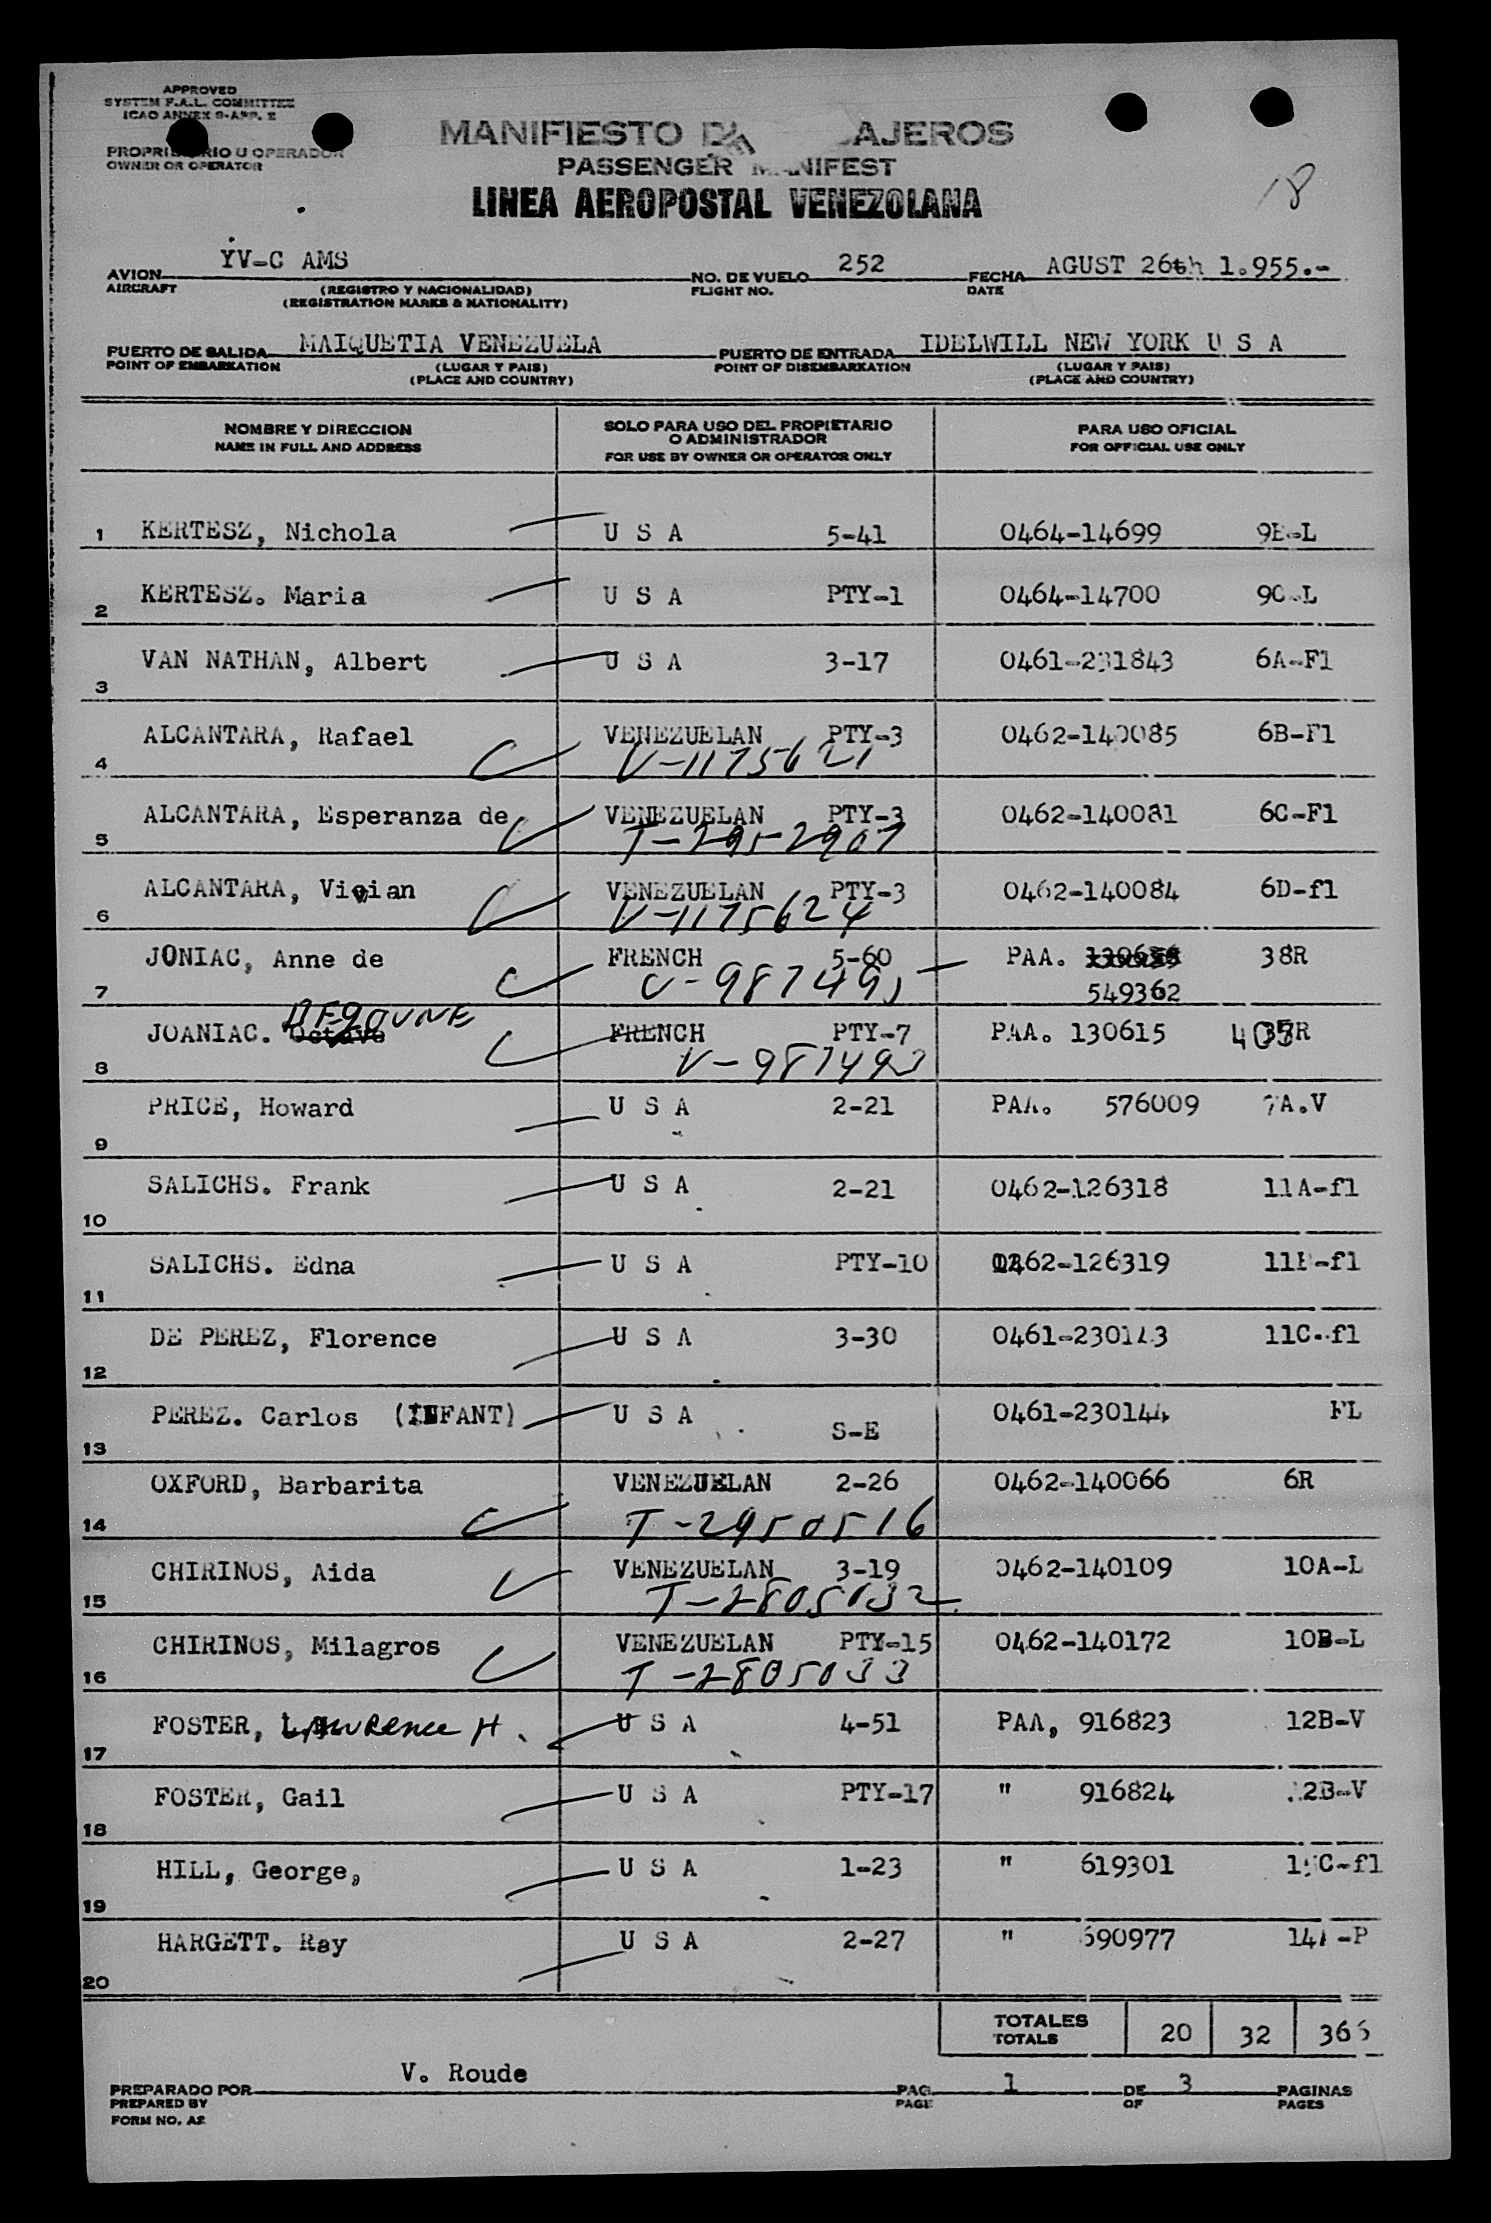 APPROVED
SYSTEM F.A.L. COMMITTEE
ICAO ANNEX 9-APP. 2
U OPERADOR
OWNER OR OPERATOR
MANIFIESTO AJEROS
PASSENGER MANIFEST
LINEA AEROPOSTAL VENEZOLANA
18
AVION YV-C AMS NO. DE VUELO 252 FECHA AGUST 26th 1.955.-
AIRCRAFT (REGISTRO Y NACIONALIDAD) FLIGHT NO. DATE
(REGISTRATION MARKS & NATIONALITY)
PUERTO DE SALIDA MAIQUETIA VENEZUELA PUERTO DE ENTRADA IDELWILL NEW YORK U S A
POINT OF EMBARKATION (LUGAR Y PAIS) POINT OF DISEMBARKATION (LUGAR Y PAIS)
(PLACE AND COUNTRY) (PLACE AND COUNTRY)
NOMBRE Y DIRECCION SOLO PARA USO DEL PROPIETARIO PARA USO OFICIAL
O ADMINISTRADOR
NAME IN FULL AND ADDRESS FOR USE BY OWNER OR OPERATOR ONLY FOR OFFICIAL USE ONLY
1 KERTESZ, Nichola U S A 5-41 0464-14699 9B-L
2 KERTESZ. Maria U S A PTY-1 0464-14700 9C-L
3 VAN NATHAN, Albert U S A 3-17 0461-231843 6A-F1
4 ALCANTARA, Rafael VENEZUELAN PTY-3 0462-140085 6B-F1
V-1175621
5 ALCANTARA, Esperanza de VENEZUELAN PTY-3 0462-140081 6C-F1
T-2952907
6 ALCANTARA, Vivian VENEZUELAN PTY-3 0462-140084 6D-f1
V-1175624
7 JONIAC, Anne de FRENCH 5-60 PAA. 38R
549362
8 JOANIAC. Octave FRENCH PTY-7 PAA. 130615
V-987493
9 PRICE, Howard U S A 2-21 PAA. 576009 7A.V
10 SALICHS. Frank U S A 2-21 0462-126318 11A-f1
11 SALICHS. Edna U S A PTY-10 0462-126319 11B-f1
12 DE PEREZ, Florence U S A 3-30 0461-230143 11C-f1
13 PEREZ. Carlos (INFANT) U S A S-E 0461-230144 FL
14 OXFORD, Barbarita VENEZUELAN 2-26 0462-140066 6R
T-2950516
15 CHIRINOS, Aida VENEZUELAN 3-19 0462-140109 10A-L
T-2805032
16 CHIRINOS, Milagros VENEZUELAN PTY-15 0462-140172 10B-L
T-2805033
17 FOSTER, Lawrence H. U S A 4-51 PAA, 916823 12B-V
18 FOSTER, Gail U S A PTY-17 " 916824 12B-V
19 HILL, George, U S A 1-23 " 619301
20 HARGETT. Ray U S A 2-27 " 690977
TOTALES 20 32 366
TOTALS
PREPARADO POR V. Roude PAG. 1 DE 3 PAGINAS
PREPARED BY PAGE OF PAGES
FORM NO. A2